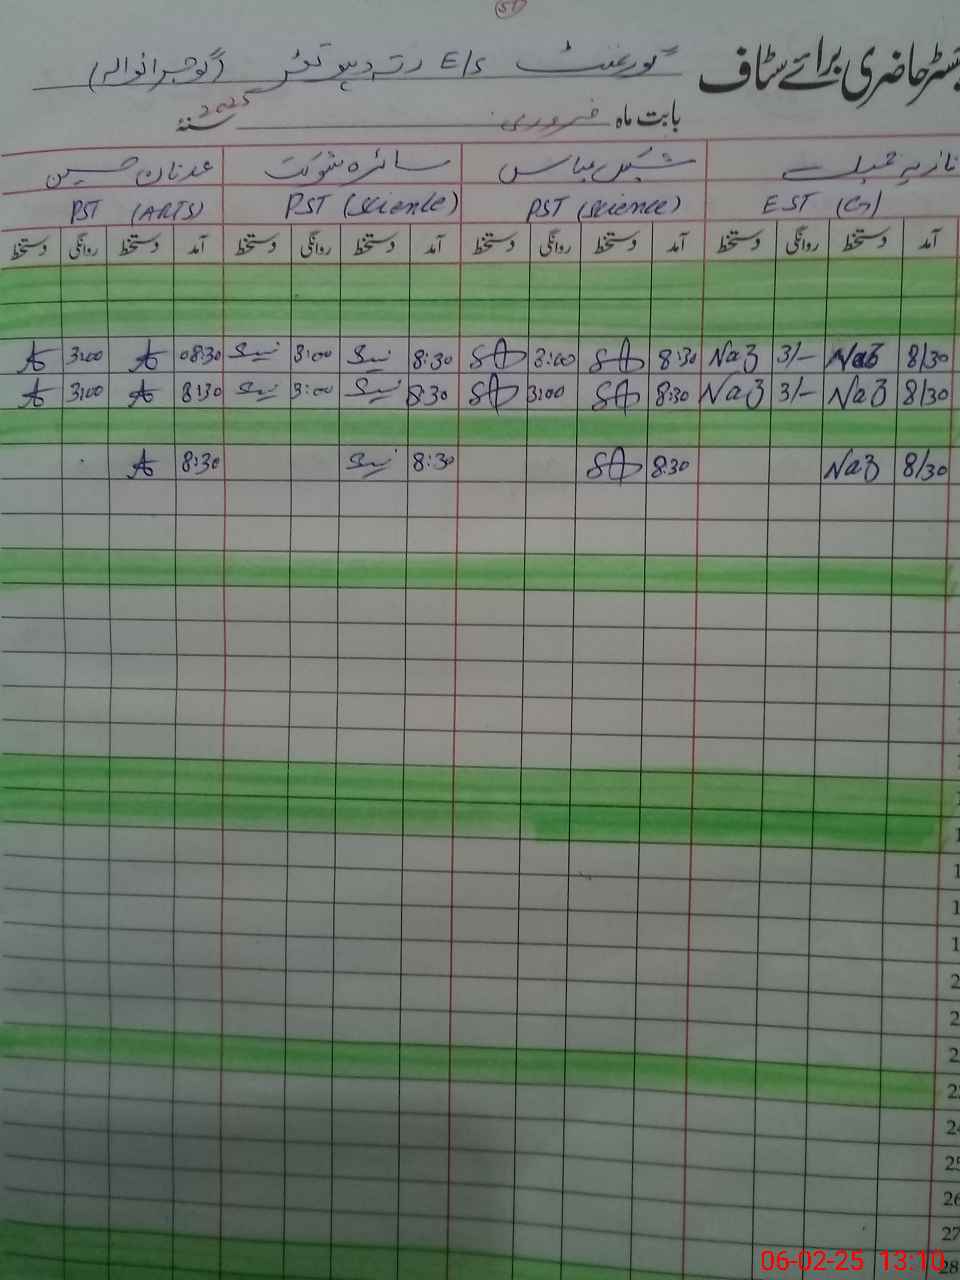 51
رجسٹر حاضری برائے سٹاف گورنمنٹ E/S رتہ دہوتڑ (گوجرانوالہ)
بابت ماہ فروری سنہ 2025
نازیہ جمیلہ شکیل عباس سائرہ شوکت عدنان حسین
EST (G) PST (science) PST (science) PST (ARTS)
آمد دستخط روانگی دستخط آمد دستخط روانگی دستخط آمد دستخط روانگی دستخط آمد دستخط روانگی دستخط
8/30 Naz 3/- Naz 8:30 SA 3:00 SA 8:30 3:00 08:30 A 3:00 A
8/30 Naz 3/- Naz 8:30 SA 3:00 SA 8:30 3:00 8:30 A 3:00 A
8/30 Naz 8:30 SA 8:30 8:30 A
24
25
26
27
28
06-02-25 13:10